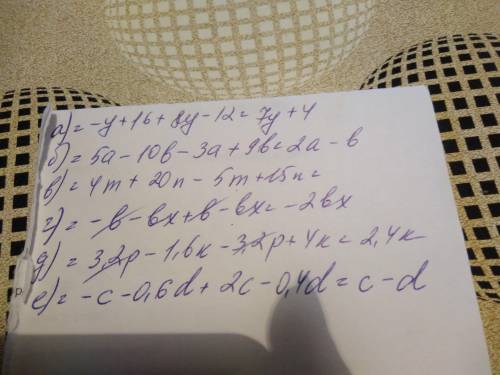 а) = -y + 16 + 8y - 12 = 7y + 4
б) = 5a - 10в - 3a + 9в = 2a - в
в) = 4m + 20n - 5m + 15n =
г) = -в - вx + в - вx = -2вx
д) = 3,2p - 1,6к - 3,2p + 4к = 2,4к
е) = -c - 0,6d + 2c - 0,4d = c - d